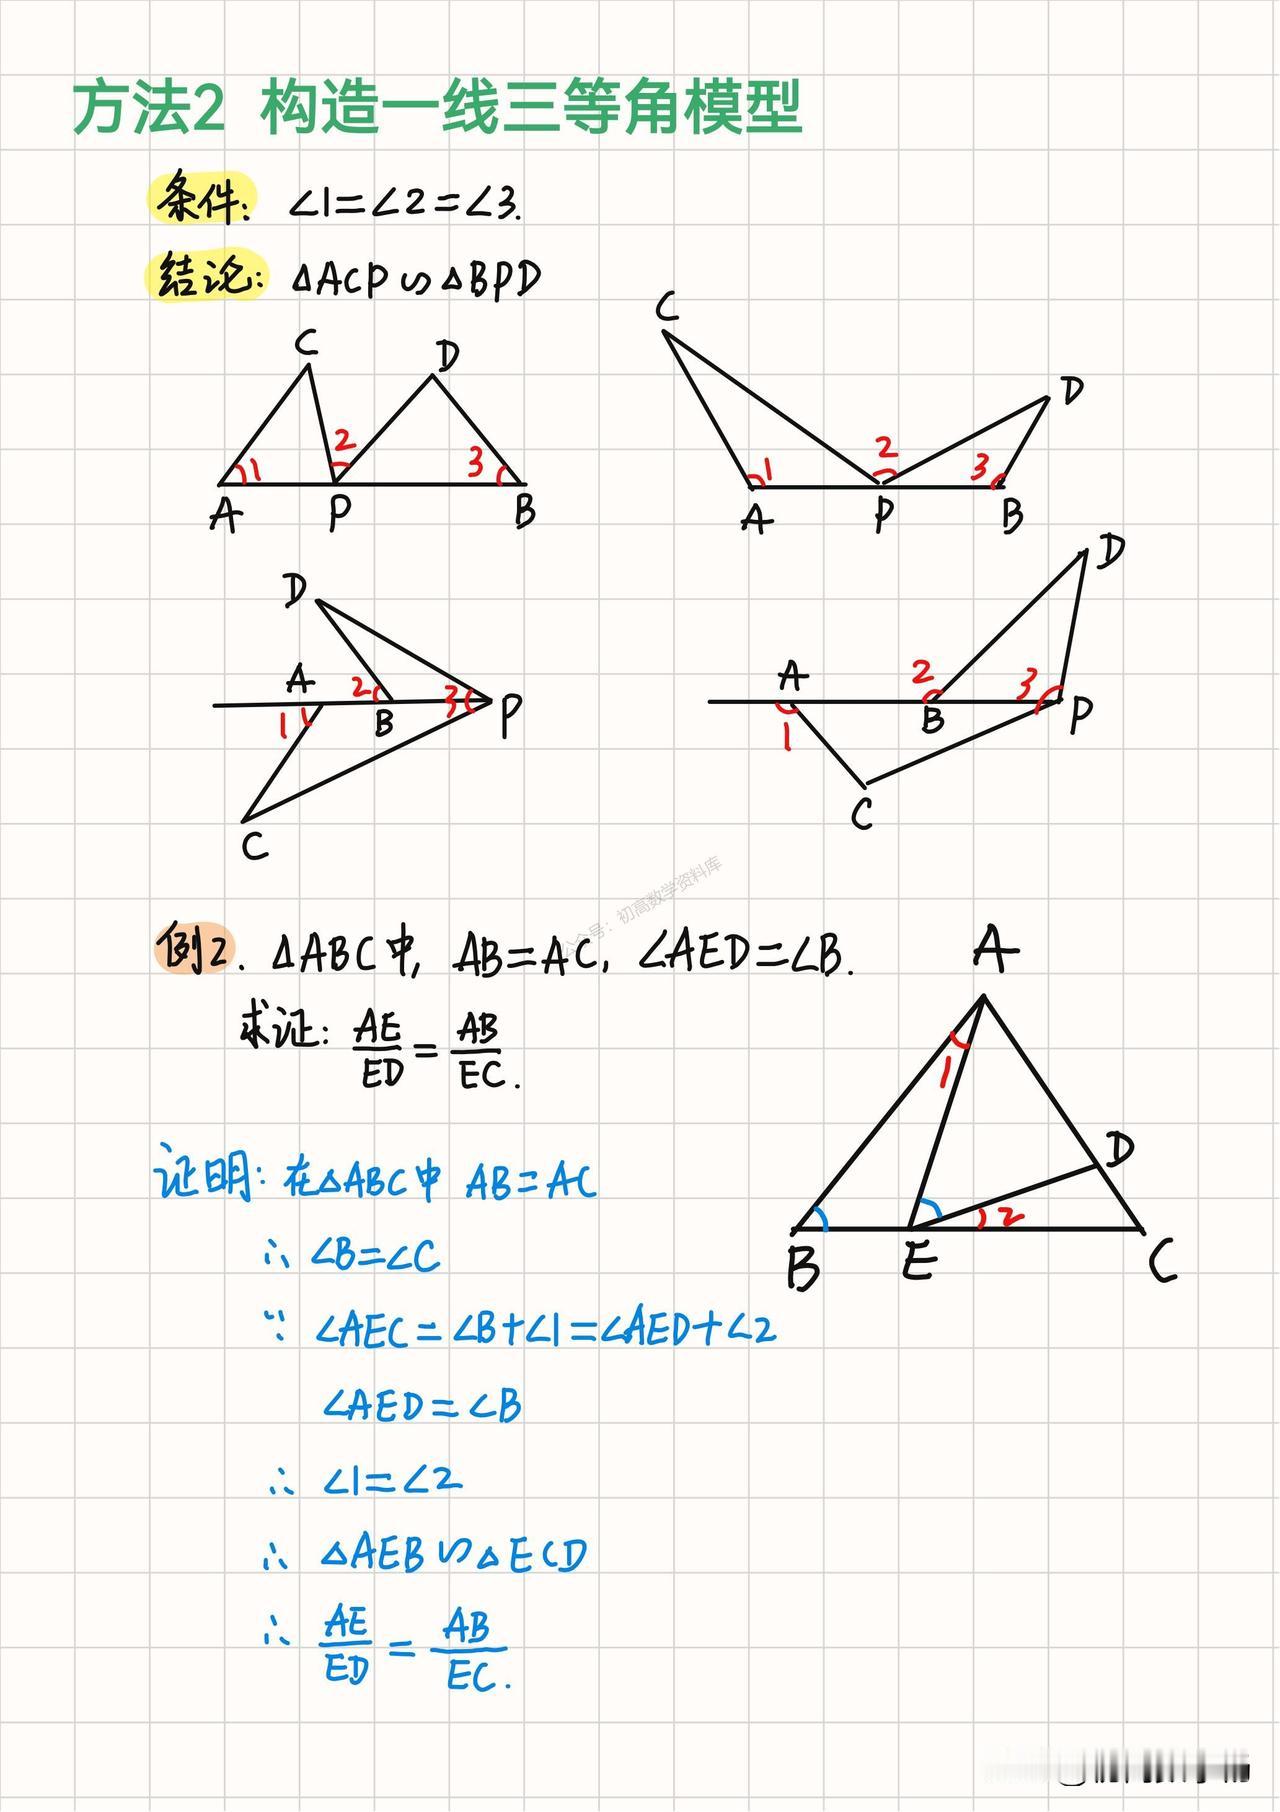 方法2 构造一线三等角模型
条件: ∠1=∠2=∠3.
结论: △ACP∽△BPD
C
D
1
2
3
A
P
B
C
D
1
2
3
A
P
B
D
A
2
3
1
B
P
C
D
A
2
3
1
B
P
C
公众号：初高数学资料库
例2. △ABC中, AB=AC, ∠AED=∠B.
求证: AE/ED = AB/EC.
A
1
D
2
B
E
C
证明: 在△ABC中 AB=AC
∴ ∠B=∠C
∵ ∠AEC=∠B+∠1=∠AED+∠2
∠AED=∠B
∴ ∠1=∠2
∴ △AEB∽△ECD
∴ AE/ED = AB/EC.